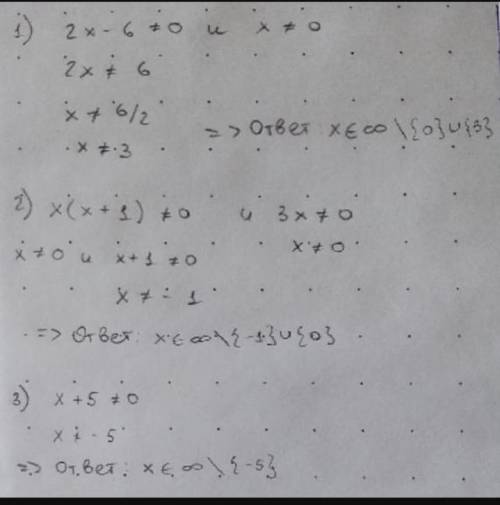 1) 2x - 6 ≠ 0 и x ≠ 0
2x ≠ 6
x ≠ 6/2
x ≠ 3
=> Ответ: x ∈ ∞ \ {0} ∪ {3}
2) x(x + 1) ≠ 0 и 3x ≠ 0
x ≠ 0 и x + 1 ≠ 0 x ≠ 0
x ≠ - 1
=> Ответ: x ∈ ∞ \ {-1} ∪ {0}
3) x + 5 ≠ 0
x ≠ - 5
=> Ответ: x ∈ ∞ \ {-5}